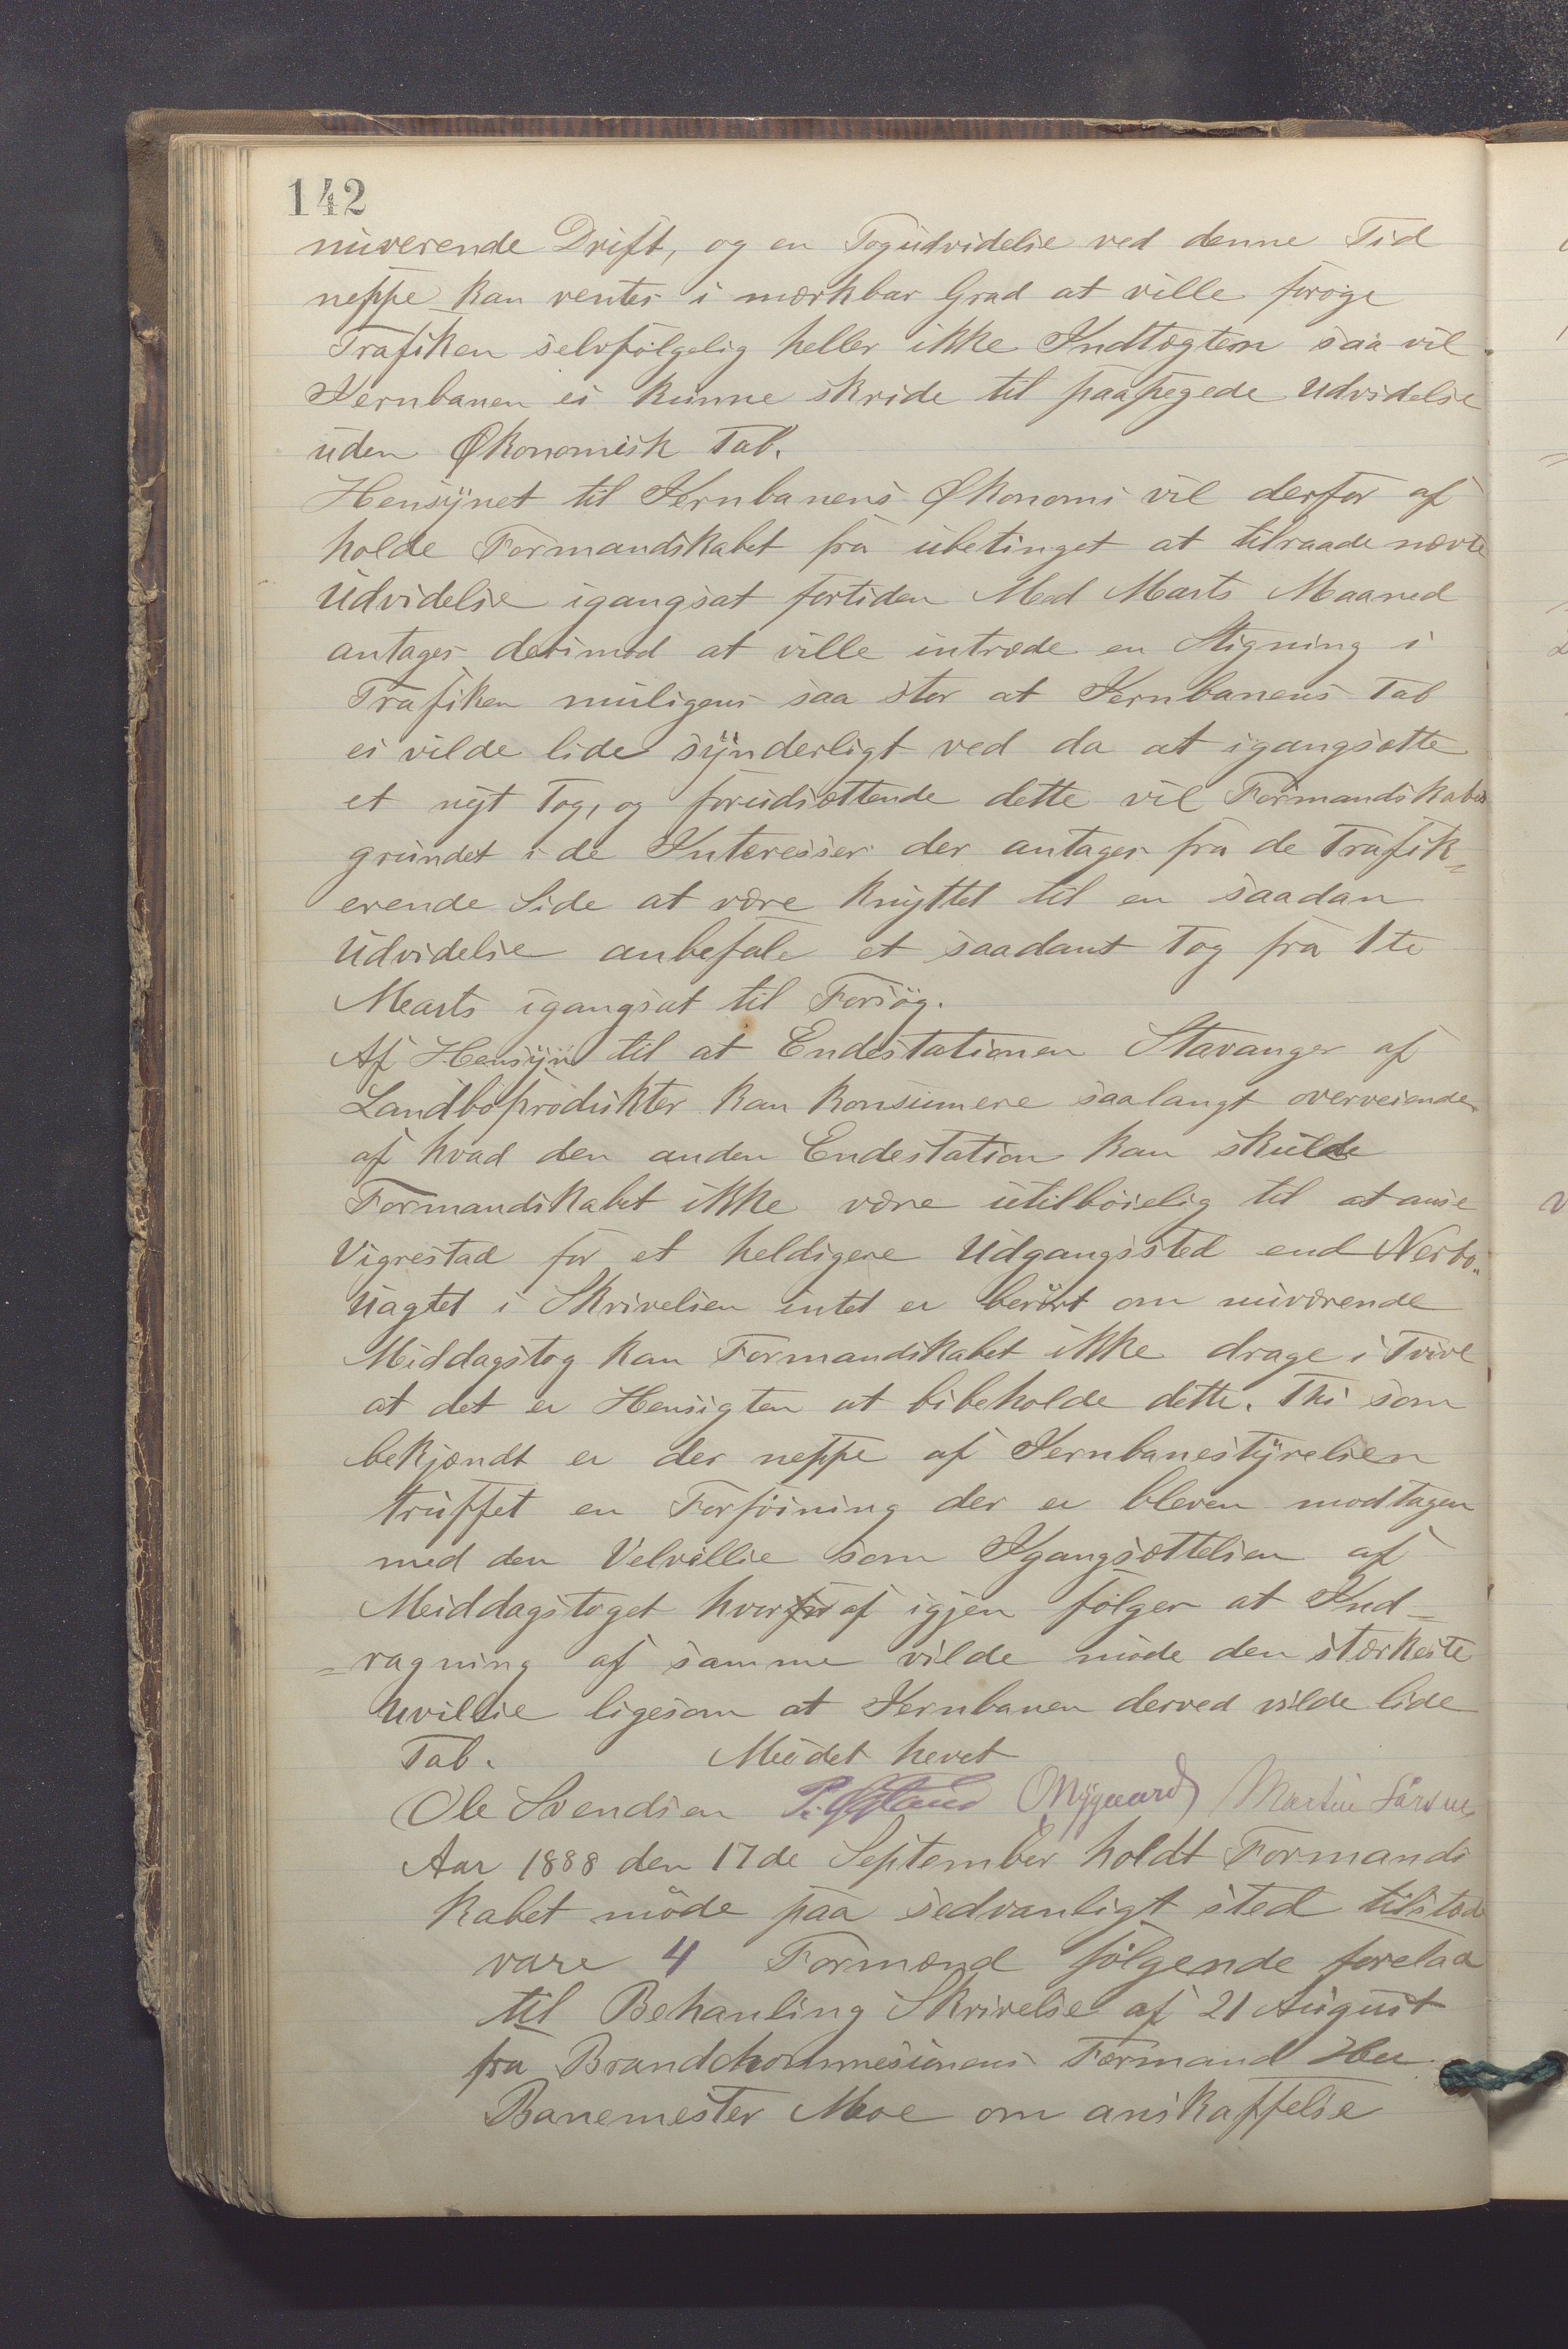 142
nuverende Drift, og en Togudvidelse ved denne Tid
neppe kan ventes i mærkbar Grad at ville forøge
Trafiken selvfølgelig heller ikke Indtægtern saa vil
Jernbanen ei kunne skride til paapegede Udvidelse
uden Økonomisk Tab.
Hensynet til Jernbanens Økonomi vil derfor af
holde Formandskabet fra ubetinget at tilraade nævte
Udvidelse igangsat fortiden Med Marts Maaned
antages derimod at ville intræde en Stigning i
Trafiken muligens saa stor at Jernbanens Tab
ei vilde lide synderligt ved da at igangsætte
et nyt Tog, og forudsættende dette vil Formandskabet
grundet i de Interesser der antages fra de Trafik=
erende Side at være knyttet til en saadan
Udvidelse anbefale et saadant Tog fra 1te
Marts igangsat til Forsøg.
Af Hensyn til at Endestationen Stavanger af
Landboprodukter kan konsumere saalangt overveiende
af hvad den anden Endestation kan skulde
Formandskabet ikke være utilbøielig til at anse
Vigrestad for et heldigere Udgangssted end Nerbø
Uagtet i Skrivelsen intet er berørt om nuværende
Middagstog kan Formandskabet ikke drage i Tvivl
at det er Hensigten at bibeholde dette. Thi som
bekjændt er der neppe af Jernbanestyrelsen
truffet en Forføining der er bleven modtagen
med den Velvillie som Igangsættelsen af
Meiddagstoget hvorfor af igjen følger at Ind=
=ragning af samme vilde møde den stærkeste
Uvillie ligesom at Jernbanen derved vilde lide
Tab. Mødet hevet
Ole Svendsen O Nygaard Martin Larsen
Aar 1888 den 17de September holdt Formands
kabet møde paa sedvanligt sted tilstede
vare 4 Formænd følgende forelaa
til Behanling Skrivelse af 21 August
fra Brandchommesionens Formand Her
Banemester Moe om anskaffelse